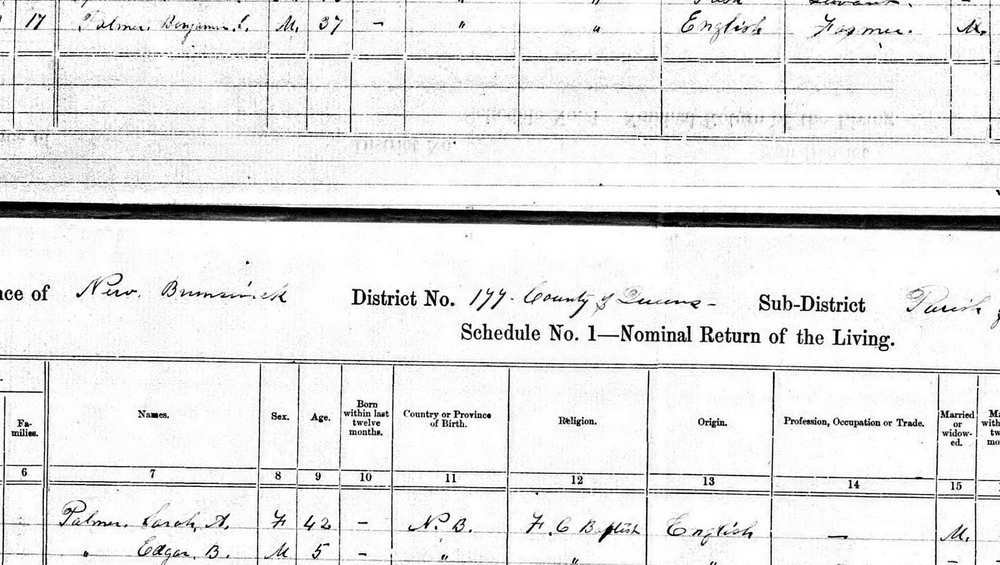 17 Palmer. Benjamin. M. 37 - " " English Farmer. M.
ce of New. Brunswick District No. 177. County of Queens - Sub-District Parish
Schedule No. 1—Nominal Return of the Living.
Fa-milies. Names. Sex. Age. Born within last twelve months. Country or Province of Birth. Religion. Origin. Profession, Occupation or Trade. Married or widow-ed.
6 7 8 9 10 11 12 13 14 15
Palmer. Sarah, A. F 42 - N. B. F. C Baptist English — M.
" Edgar, B. M 5 - " " " -